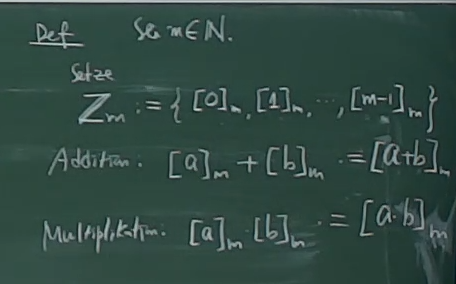 Def Sei m∈ℕ.
Setze
ℤₘ := { [0]ₘ, [1]ₘ, ..., [m-1]ₘ }
Addition: [a]ₘ + [b]ₘ := [a+b]ₘ
Multiplikation: [a]ₘ · [b]ₘ := [a·b]ₘ